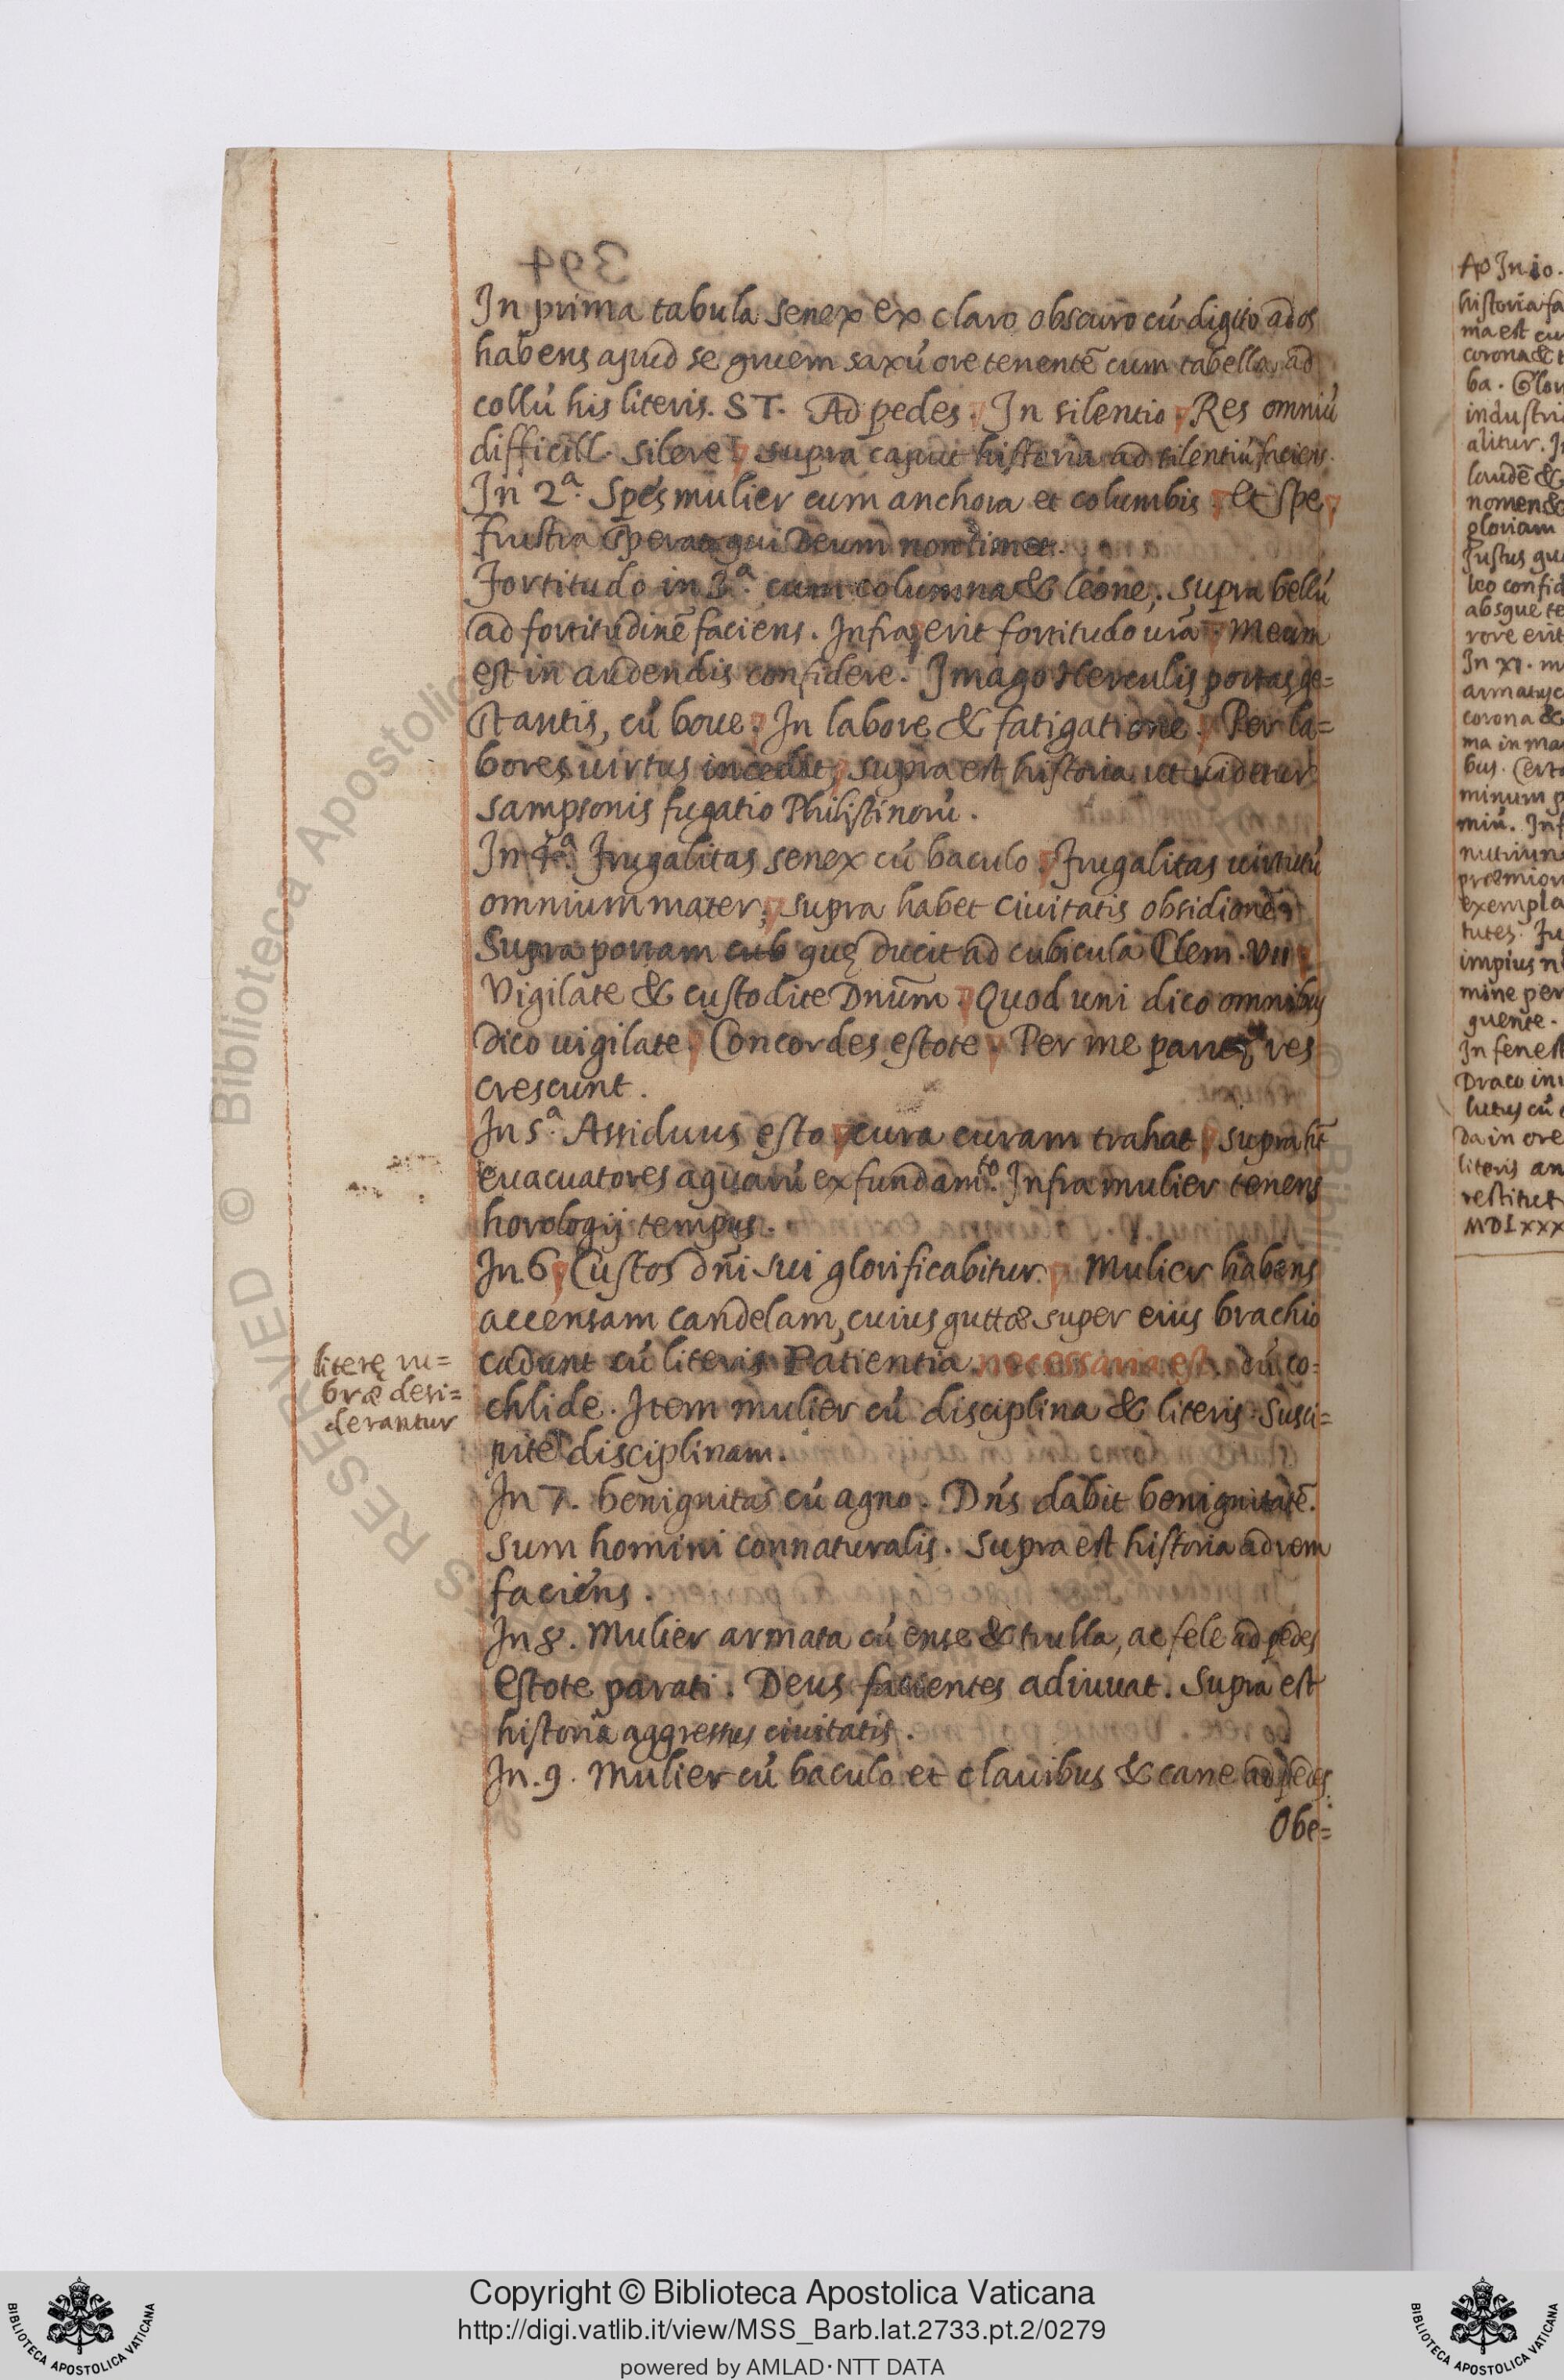 In prima tabula senex ex claro obscuro cú digito ad os
habens apud se gruem saxú ore tenentē cum tabella ad
collú his literis. ST. Ad pedes. In silentio. Res omniú
difficill. silere. supra caput historia ad silentiú faciens.
In 2ª. Spes mulier cum anchora et columbis. et Spe.
frustra sperat qui Deum non timet.
Fortitudo in 3ª. cum columna & leone, supra bellú
ad fortitudinē faciens. Infra, erit fortitudo urā. Meum
est in audendis confidere. Imago Herculis portas ge=
stantis, cú boue. In labore & fatigatione. Per la=
bores uirtus incedit, supra est historia ut uidetur
sampsonis fugatio Philistinorú.
In 4ª. Frugalitas senex cú baculo. Frugalitas uirtutú
omnium mater, supra habet ciuitatis obsidionē
Supra portam cub quę ducit ad cubicula Clem. VII.
Vigilate & custodite Dnūm. Quod uni dico omnibus
dico uigilate. Concordes estote. Per me paruę res
crescunt.
In 5ª. Assiduus esto. cura curam trahat. supra hēt
euacuatores aquarú ex fundamto. Infra mulier tenens
horologij tempus.
In. 6. Custos dñi sui glorificabitur. Mulier habens
accensam candelam, cuius guttæ super eius brachio
cadunt cú literis Patientia. necessaria est. dú co=
chlide. Item mulier cú disciplina & literis. Susci=
pite disciplinam.
In 7. benignitas cú agno. Dńs dabit benignitatē.
sum homini connaturalis. supra est historia ad rem
faciens.
In 8. Mulier armata cú ense & trulla, ac fele ad pedes
Estote parati. Deus facientes adiuuat. supra est
historia aggressus ciuitatis.
In. 9. Mulier cú baculo et clauibus & cane ad pedes.
Obe=
literę ru=
bræ desi=
derantur
Ap In 10.
historia fa
ma est cu
corona & t
ba. Glor
industri
alitur. In
laudē &
nomen &
gloriam
Justus qu
leo confid
absque te
rore erit
In XI. m
armatus c
corona &
ma in ma
bus. Certa
minum p
miú. Inf
nutriun
præmior
exempla
tutes. Fu
impius n
mine per
quente.
In fenest
Draco in
lutus cú
da in ore
literis an
restituet
MDLXXX
Copyright © Biblioteca Apostolica Vaticana
http://digi.vatlib.it/view/MSS_Barb.lat.2733.pt.2/0279
powered by AMLAD·NTT DATA
BIBLIOTECA APOSTOLICA VATICANA
BIBLIOTECA APOSTOLICA VATICANA